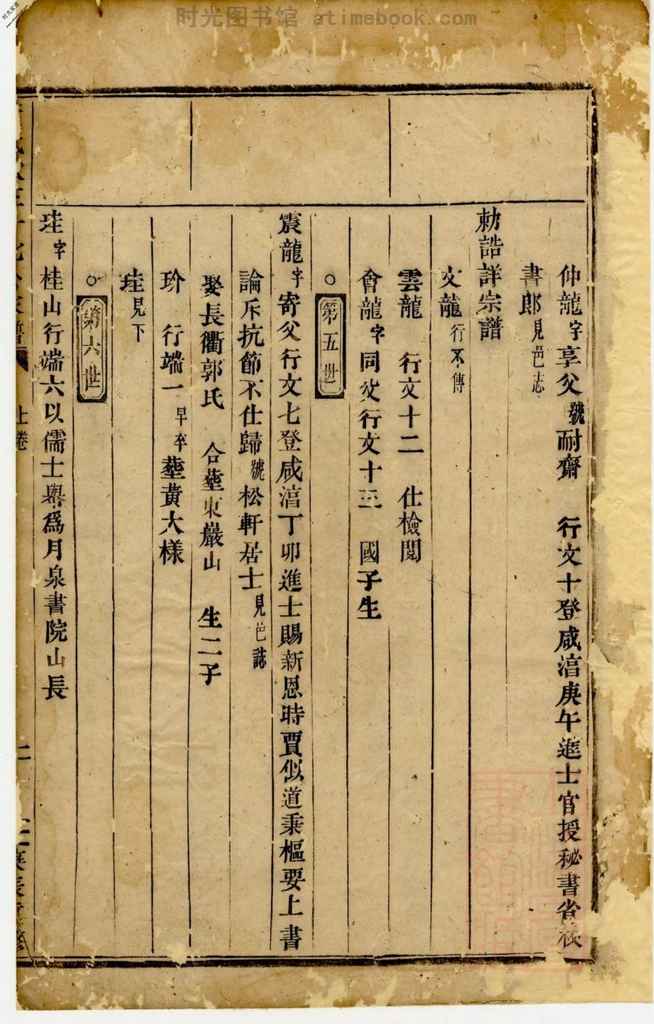 时光图书馆 atimebook.com
仲龍字享父號耐齋 行文十登咸淳庚午進士官授秘書省校
書郎見邑志
勅誥詳宗譜
文龍行不傳
雲龍 行文十二 仕檢閱
會龍字同父行文十三 國子生
○第五世
震龍字寄父行文七登咸淳丁卯進士賜新恩時賈似道秉樞要上書
論斥抗節不仕歸號松軒居士見邑誌
娶長衢郭氏 合塟東巖山 生二子
玠 行端一早卒塟黄大様
珪見下
○第六世
珪字桂山行端六以儒士舉爲月泉書院山長
上卷